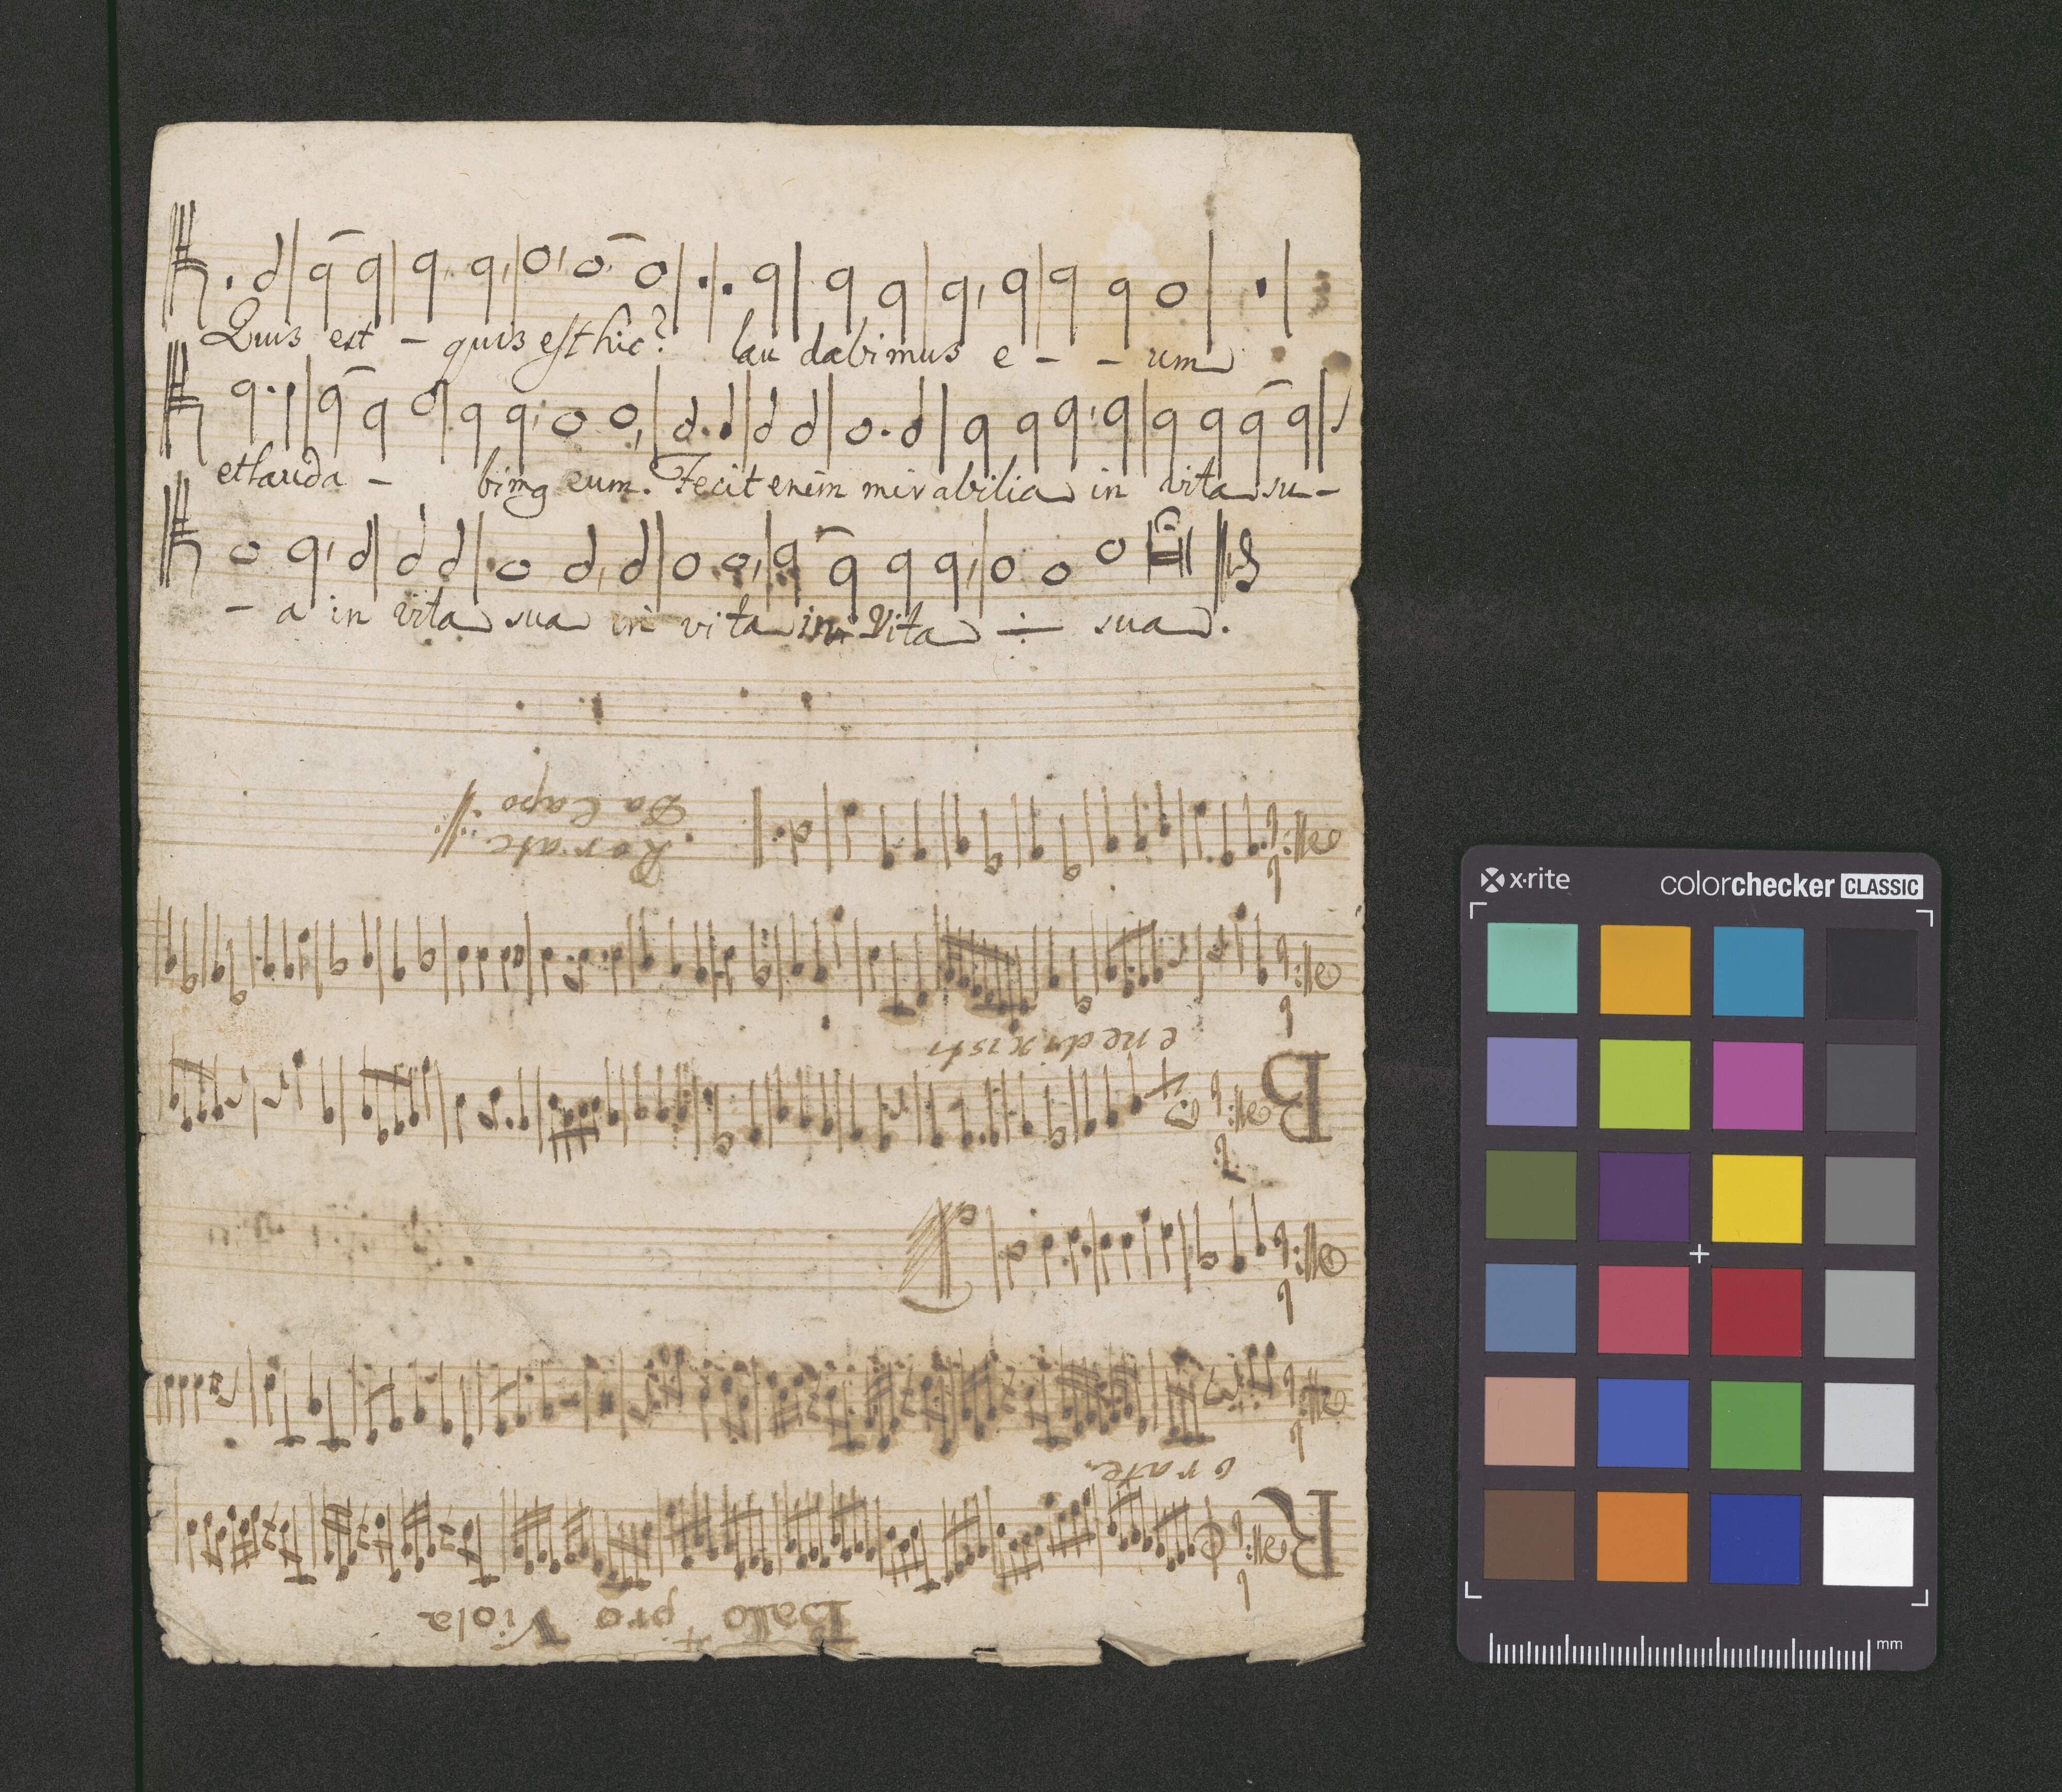 Quis est - quis est hic? lau dabimus e - - um
et lauda - bimg eum. Fecit enim mirabilia in vita su-
- a in vita sua in vita in Vita ÷ sua.
Rorate
Da Capo
Benedixisti
Rorate.
Basso pro Viola
x·rite colorchecker CLASSIC
mm